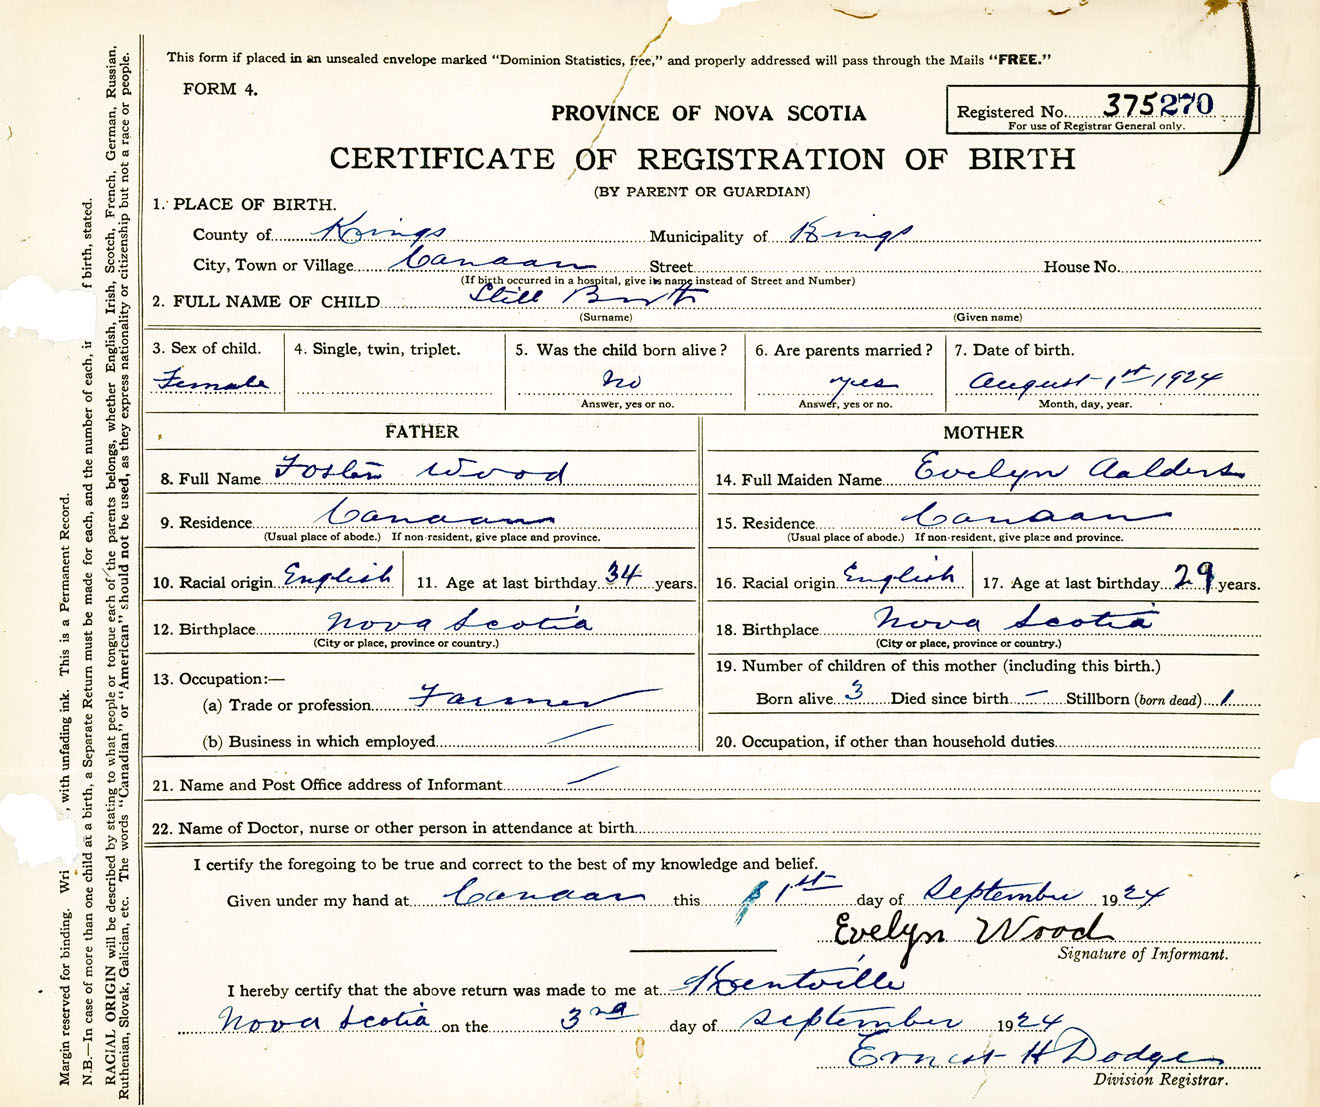 This form if placed in an unsealed envelope marked "Dominion Statistics, free," and properly addressed will pass through the Mails "FREE."
FORM 4.
Registered No. 375270
For use of Registrar General only.
PROVINCE OF NOVA SCOTIA
CERTIFICATE OF REGISTRATION OF BIRTH
(BY PARENT OR GUARDIAN)
1. PLACE OF BIRTH.
County of Kings Municipality of Kings
City, Town or Village Canaan Street House No.
(If birth occurred in a hospital, give its name instead of Street and Number)
2. FULL NAME OF CHILD Still Birth
(Surname) (Given name)
3. Sex of child. 4. Single, twin, triplet. 5. Was the child born alive? 6. Are parents married? 7. Date of birth.
Female no yes August 1st 1924
Answer, yes or no. Answer, yes or no. Month, day, year.
FATHER MOTHER
8. Full Name Foster Wood 14. Full Maiden Name Evelyn Aalders
9. Residence Canaan 15. Residence Canaan
(Usual place of abode.) If non-resident, give place and province. (Usual place of abode.) If non-resident, give place and province.
10. Racial origin English 11. Age at last birthday 34 years. 16. Racial origin English 17. Age at last birthday 29 years.
12. Birthplace Nova Scotia 18. Birthplace Nova Scotia
(City or place, province or country.) (City or place, province or country.)
13. Occupation:— 19. Number of children of this mother (including this birth.)
(a) Trade or profession Farmer Born alive 3 Died since birth — Stillborn (born dead) 1
(b) Business in which employed 20. Occupation, if other than household duties
21. Name and Post Office address of Informant
22. Name of Doctor, nurse or other person in attendance at birth
I certify the foregoing to be true and correct to the best of my knowledge and belief.
Given under my hand at Canaan this 1st day of September 1924
Evelyn Wood
Signature of Informant.
I hereby certify that the above return was made to me at Kentville
Nova Scotia on the 3rd day of September 1924
Ernest H Dodge
Division Registrar.
Margin reserved for binding. Wri , with unfading ink. This is a Permanent Record.
N.B.—In case of more than one child at a birth, a Separate Return must be made for each, and the number of each, in f birth, stated.
RACIAL ORIGIN will be described by stating to what people or tongue each of the parents belongs, whether English, Irish, Scotch, French, German, Russian,
Ruthenian, Slovak, Galician, etc. The words "Canadian" or "American" should not be used, as they express nationality or citizenship but not a race or people.